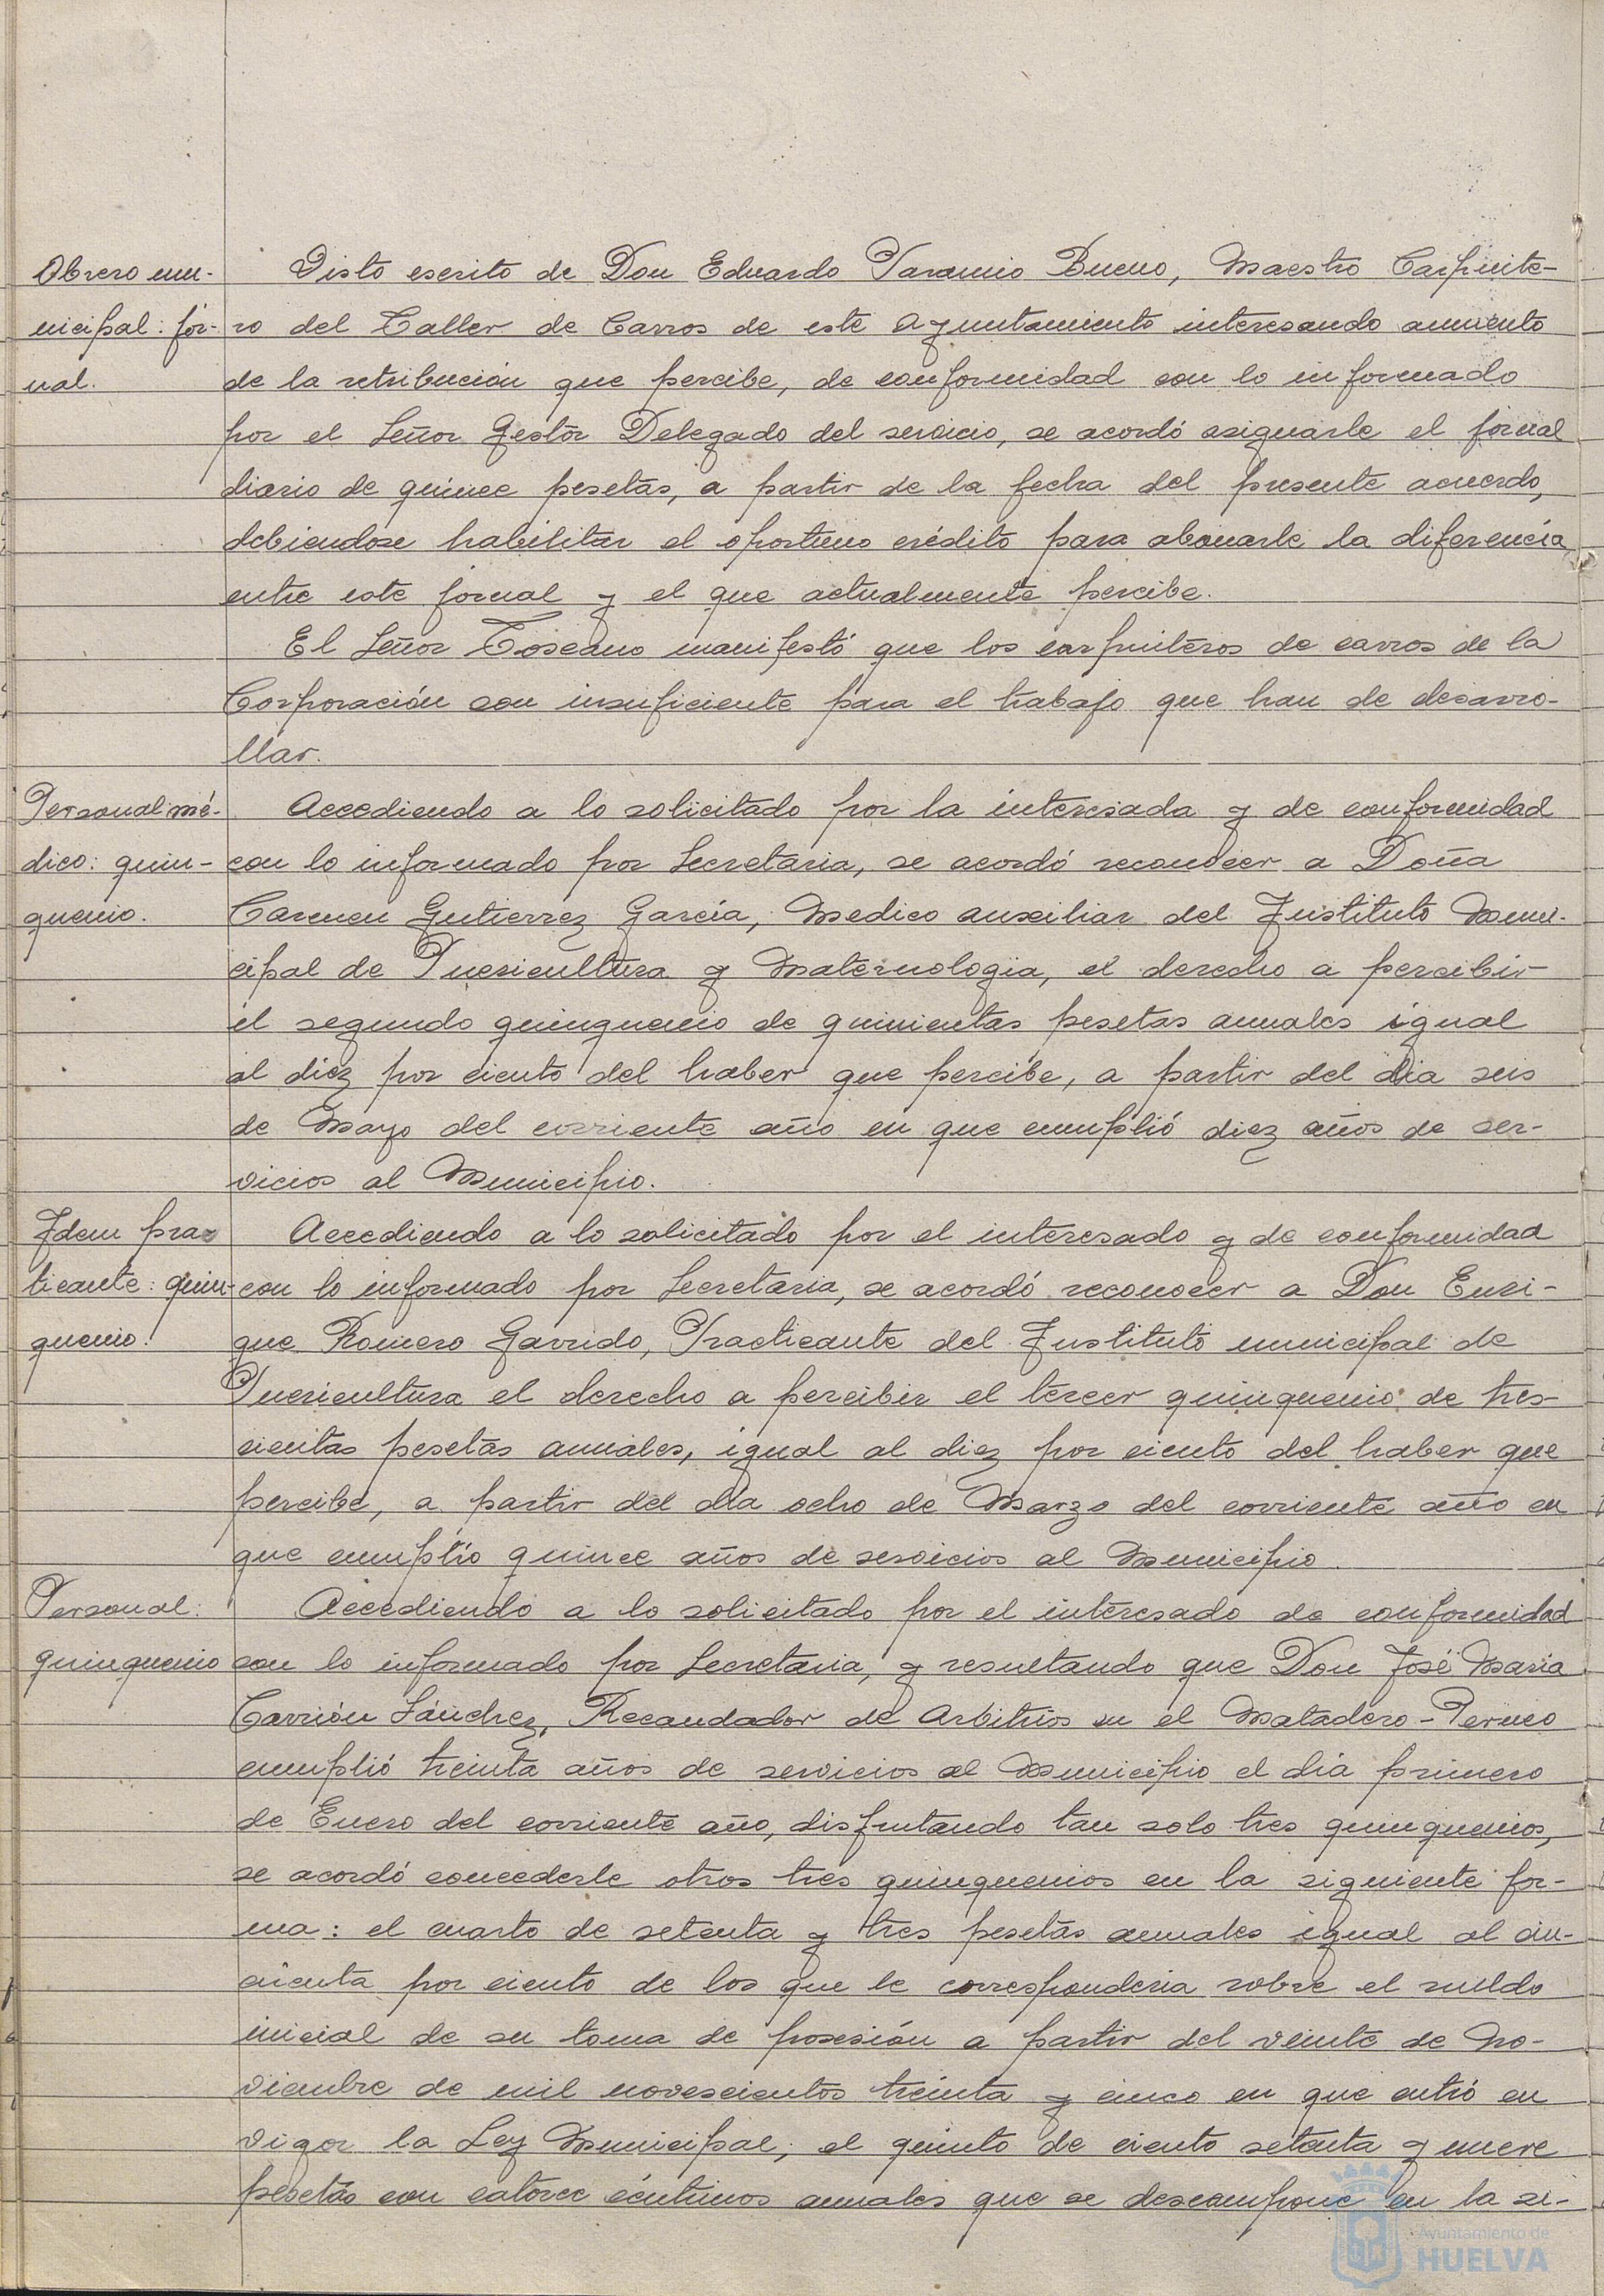 Obrero mu-
nicipal: jor-
nal.
Visto escrito de Don Eduardo Paramio Bueno, Maestro Carpinte-
ro del Taller de Carros de este Ayuntamiento interesando aumento
de la retribución que percibe, de conformidad con lo informado
por el Señor Gestor Delegado del servicio, se acordó asignarle el jornal
diario de quince pesetas, a partir de la fecha del presente acuerdo,
debiendose habilitar el oportuno crédito para abonarle la diferencia
entre este jornal y el que actualmente percibe.
El Señor Toscano manifestó que los carpinteros de carros de la
Corporación son insuficiente para el trabajo que han de desarro-
llar.
Personal mé-
dico: quin-
quenio.
Accediendo a lo solicitado por la interesada y de conformidad
con lo informado por Secretaria, se acordó reconocer a Doña
Carmen Gutierrez García, Medico auxiliar del Instituto Muni-
cipal de Puericultura y Maternologia, el derecho a percibir
el segundo quinquenio de quinientas pesetas anuales igual
al diez por ciento del haber que percibe, a partir del dia seis
de Mayo del corriente año en que cumplió diez años de ser-
vicios al Municipio.
Idem prac
ticante: quin-
quenio.
Accediendo a lo solicitado por el interesado y de conformidad
con lo informado por Secretaria, se acordó reconocer a Don Enri-
que Romero Garrido, Practicante del Instituto municipal de
Puericultura el derecho a percibir el tercer quinquenio de tres-
cientas pesetas anuales, igual al diez por ciento del haber que
percibe, a partir del dia ocho de Marzo del corriente año en
que cumplió quince años de servicios al Municipio.
Personal:
quinquenio
Accediendo a lo solicitado por el interesado de conformidad
con lo informado por Secretaria, y resultando que Don José Maria
Carrión Sánchez, Recaudador de Arbitrios en el Matadero-Perneo
cumplió treinta años de servicios al Municipio el dia primero
de Enero del corriente año, disfrutando tan solo tres quinquenios,
se acordó concederle otros tres quinquenios en la siguiente for-
ma: el cuarto de setenta y tres pesetas anuales igual al cin-
cuenta por ciento de los que le corresponderia sobre el sueldo
inicial de su toma de posesión a partir del veinte de No-
viembre de mil novescientos treinta y cinco en que entró en
vigor la Ley Municipal; el quinto de ciento setenta y nueve
pesetas con catorce céntimos anuales que se descompone en la si-
Ayuntamiento de
HUELVA